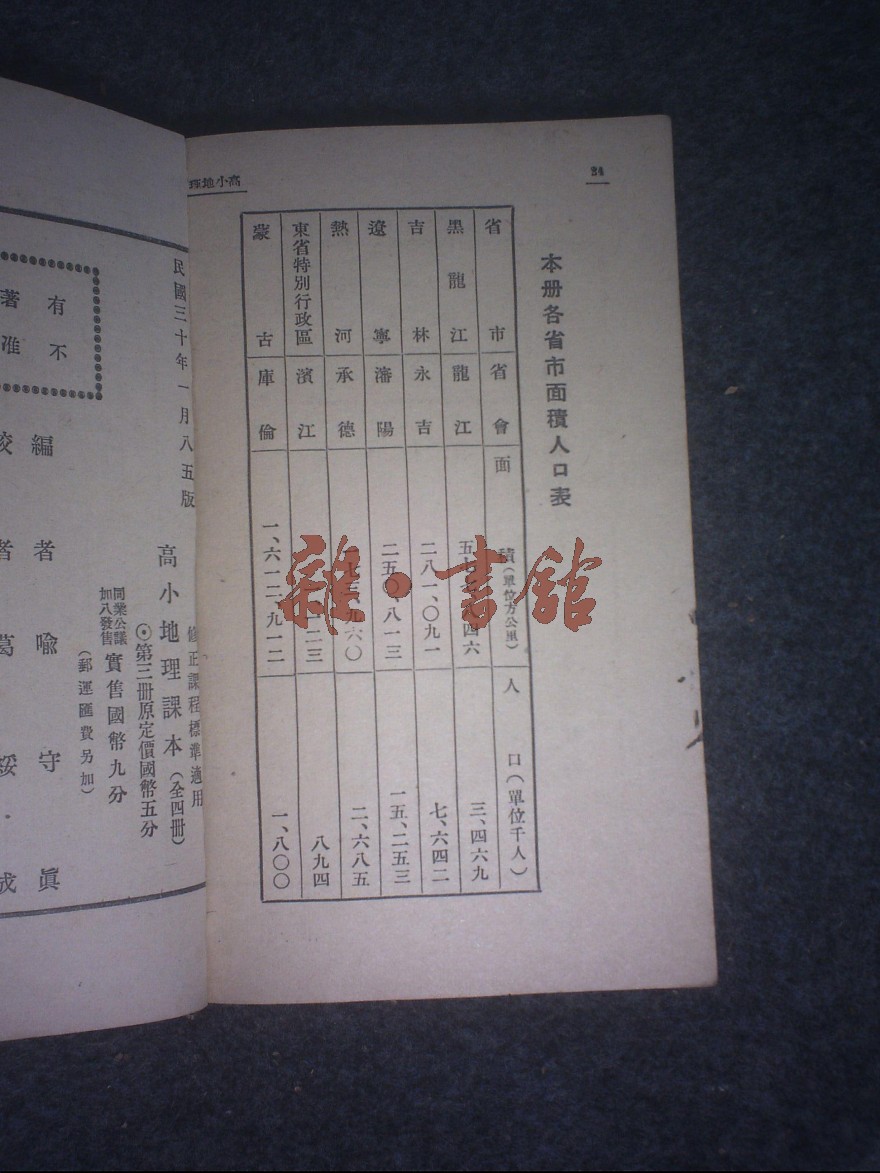 高小地理
24
本册各省市面積人口表
省市 省會 面積(單位方公里) 人口(單位千人)
黑龍江 龍江 三、四六九
吉林 永吉 二八一、〇九一 七、六四二
遼寧 瀋陽 二五〇、八一三 一五、二五三
熱河 承德 二、六八五
東省特別行政區 濱江 八九四
蒙古 庫倫 一、六一二、九一二 一、八〇〇
雜·書館
民國三十年一月八五版
修正課程標準適用
高小地理課本(全四册)
⊙第三册原定價國幣五分
實售國幣九分
同業公議
加八發售
(郵運匯費另加)
編者 喻守眞
校者 葛綏成
有
不
著
准